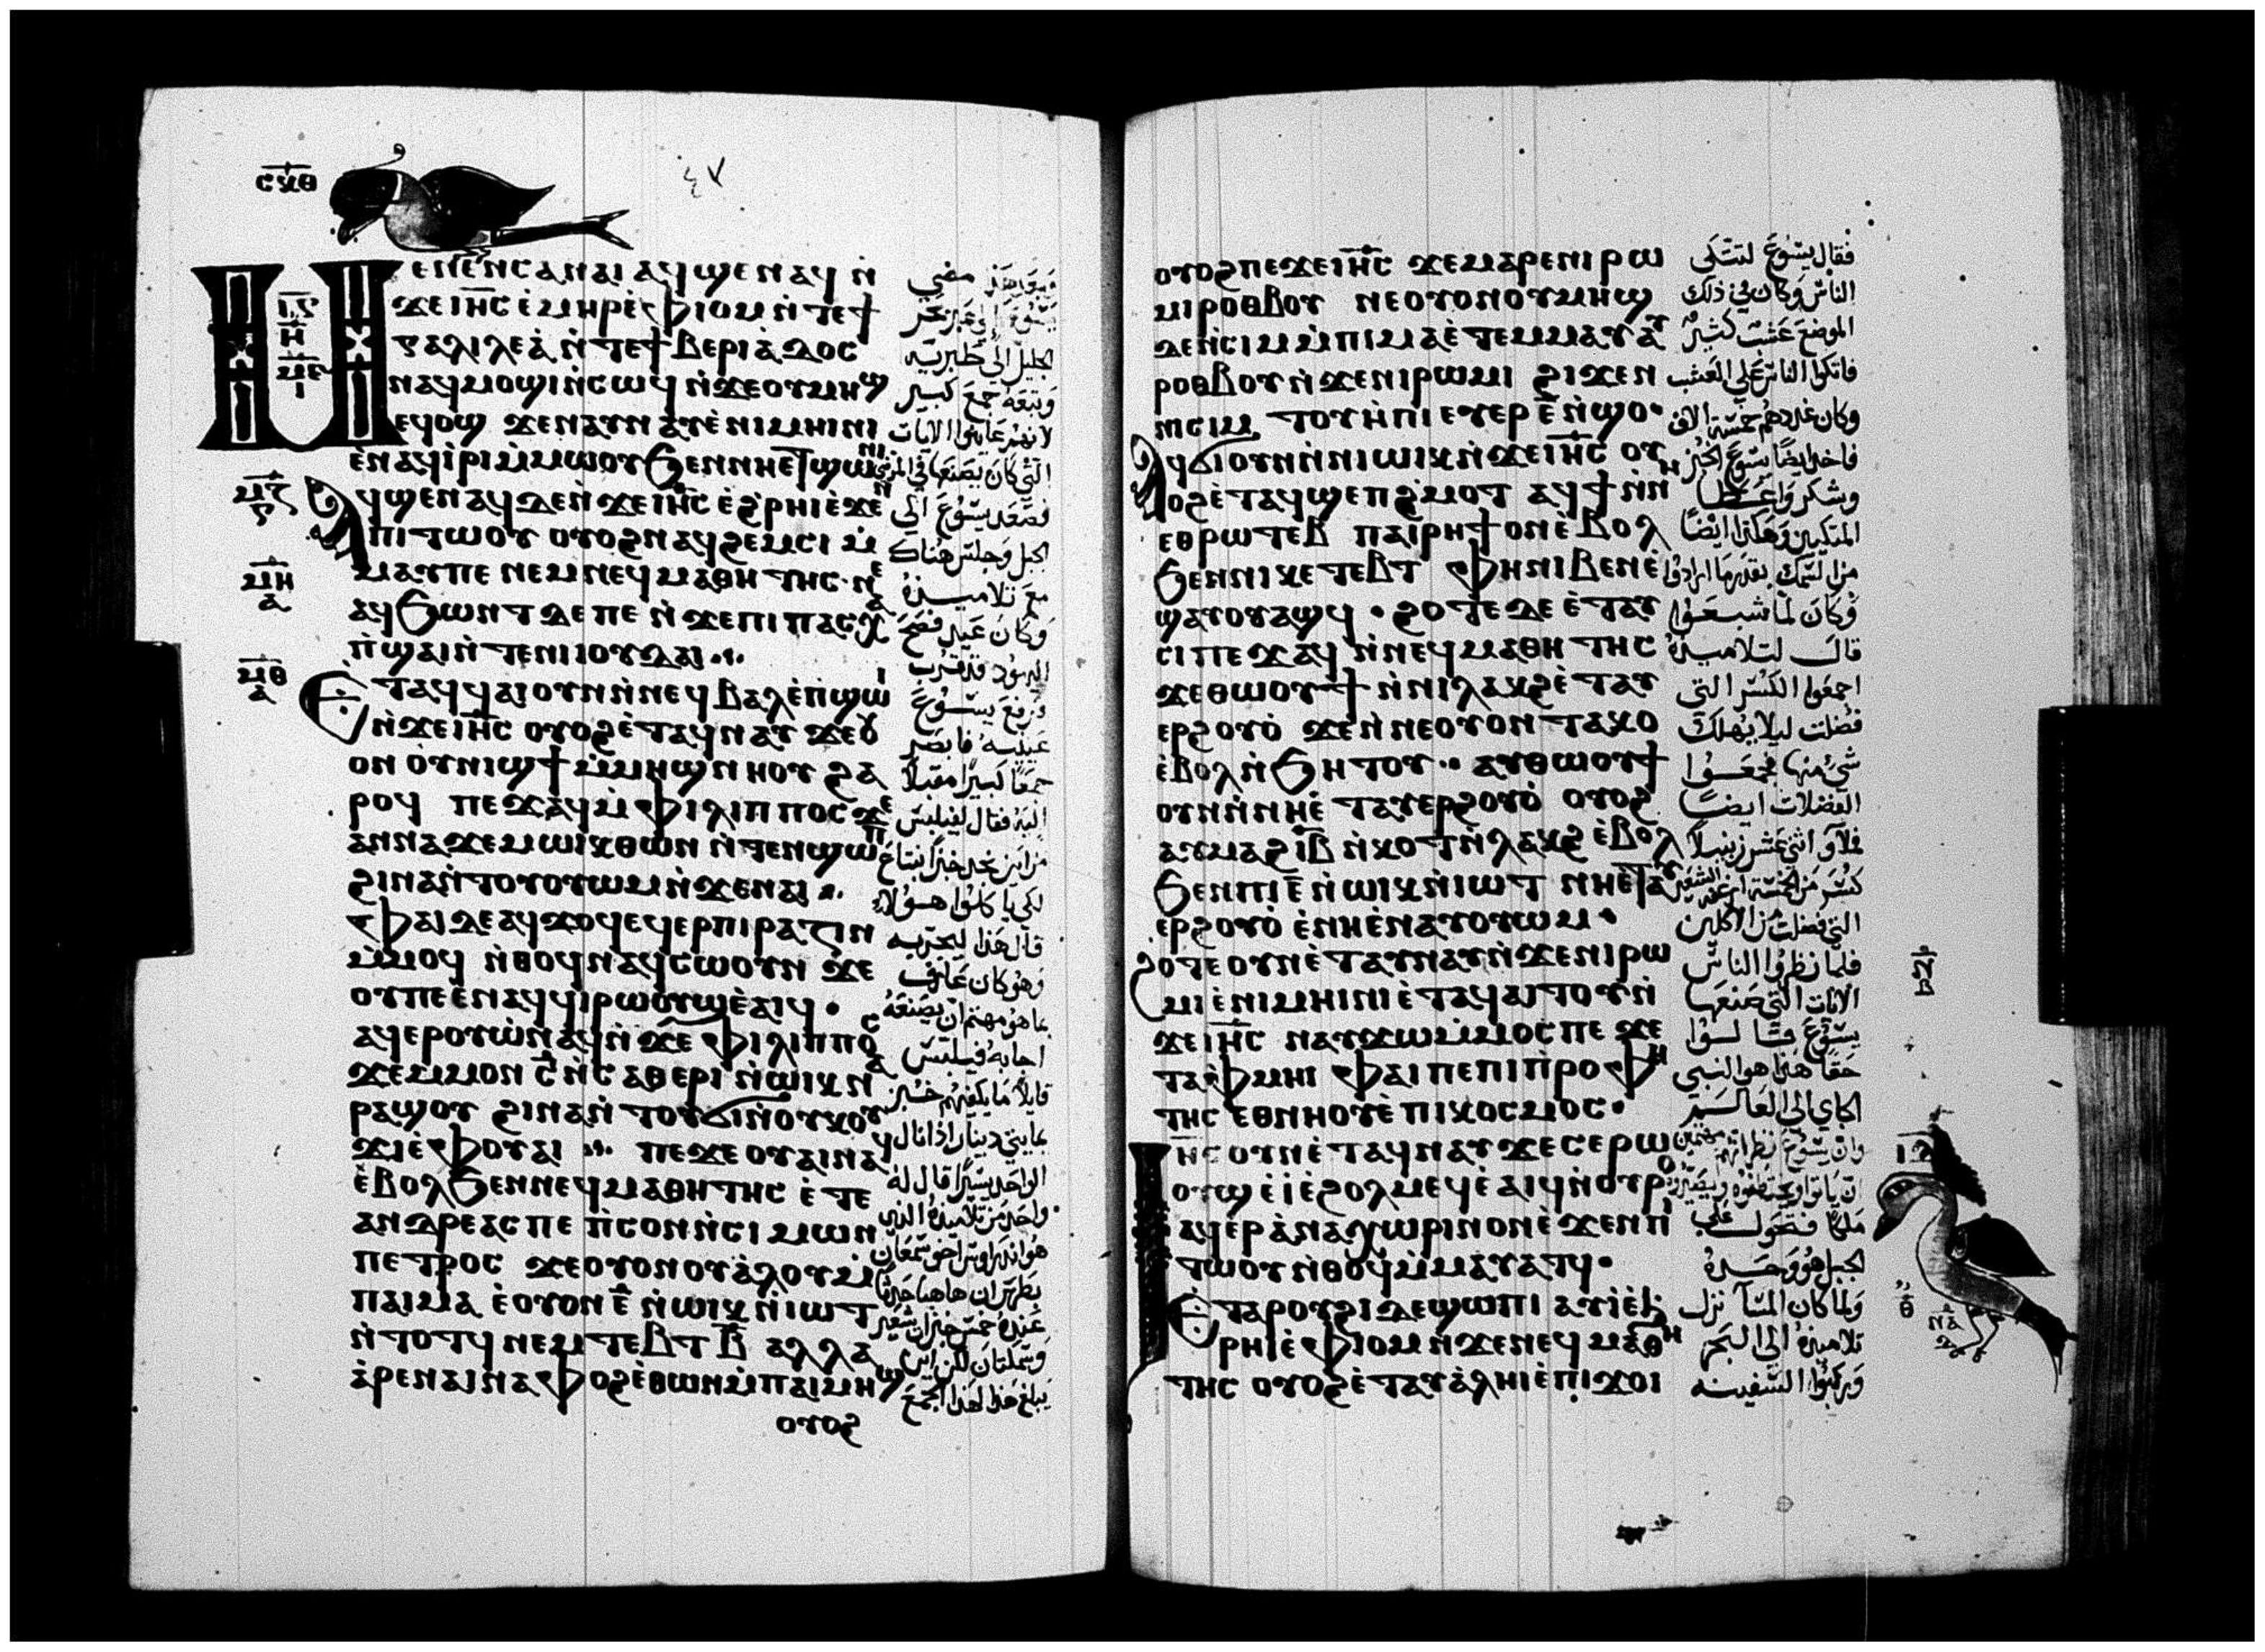 ٤٧
ⲙⲉⲛⲉⲛⲥⲁ ⲛⲁⲓ ⲁϥϣⲉⲛⲁϥ ⲛ̀
ϫⲉⲓⲏ̅ⲥ̅ ⲉ̀ⲙⲏⲣ ⲉ̀ⲫⲓⲟⲙ ⲛ̀ⲧⲉϯ
ⲅⲁⲗⲓⲗⲉⲁ̀ ⲛ̀ⲧⲉϯⲃⲉⲣⲓⲁ̀ⲇⲟⲥ
ⲛⲁϥⲙⲟϣⲓ ⲛ̀ⲥⲱϥ ⲛ̀ϫⲉⲟⲩⲙⲏϣ
ⲉϥⲟϣ ϫⲉⲛⲁⲩⲛⲁⲩ ⲉ̀ⲛⲓⲙⲏⲓⲛⲓ
ⲉ̀ⲛⲁϥⲓ̀ⲣⲓ ⲙ̀ⲙⲱⲟⲩ ϧⲉⲛⲛⲏⲉⲧϣⲱⲛⲓ
ⲁϥϣⲉⲛⲁϥ ⲇⲉ ⲛ̀ϫⲉⲓⲏ̅ⲥ̅ ⲉ̀ϩⲣⲏⲓ ⲉ̀ϫⲉⲛ
ⲡⲓⲧⲱⲟⲩ ⲟⲩⲟϩ ⲛⲁϥϩⲉⲙⲥⲓ ⲙ̀
ⲙⲁⲩⲡⲉ ⲛⲉⲙ ⲛⲉϥⲙⲁⲑⲏⲧⲏⲥ ⲛⲉ
ⲁϥϧⲱⲛⲧ ⲇⲉ ⲡⲉ ⲛ̀ϫⲉⲡⲓⲡⲁⲥⲭⲁ
ⲡ̀ϣⲁⲓ ⲛ̀ⲧⲉⲛⲓⲓⲟⲩⲇⲁⲓ
ⲉⲧⲁϥϥⲁⲓ ⲟⲩⲛ ⲛ̀ⲛⲉϥⲃⲁⲗ ⲉ̀ⲡ̀ϣⲱⲓ
ⲛ̀ϫⲉⲓⲏ̅ⲥ̅ ⲟⲩⲟϩ ⲉ̀ⲧⲁϥⲛⲁⲩ ϫⲉⲟⲩ
ⲟⲛ ⲟⲩⲛⲓϣϯ ⲙ̀ⲙⲏϣ ⲛⲏⲟⲩ ϩⲁ
ⲣⲟϥ ⲡⲉϫⲁϥ ⲙ̀ⲫⲓⲗⲓⲡⲡⲟⲥ ϫⲉ
ⲁⲛⲛⲁϫⲉⲙ ⲱⲓⲕ ⲑⲱⲛ ⲛ̀ⲧⲉⲛϣⲱⲡ
ϩⲓⲛⲁ ⲛ̀ⲧⲟⲩⲟⲩⲱⲙ ⲛ̀ϫⲉⲛⲁⲓ
ⲫⲁⲓ ⲇⲉ ⲁϥϫⲟϥ ⲉϥⲉⲣⲡⲓⲣⲁⲍⲓⲛ
ⲙ̀ⲙⲟϥ ⲛ̀ⲑⲟϥ ⲛⲁϥⲥⲱⲟⲩⲛ ϫⲉ
ⲟⲩⲡⲉ ⲉ̀ⲛⲁϥϥⲓⲣⲱⲟⲩϣ ⲉ̀ⲁⲓϥ
ⲁϥⲉⲣⲟⲩⲱ̀ ⲛⲁϥ ⲛ̀ϫⲉ ⲫⲓⲗⲓⲡⲡⲟⲥ
ϫⲉⲙⲙⲟⲛ ⲥ̅ ⲛ̀ⲥⲁⲑⲉⲣⲓ ⲛ̀ⲱⲓⲕ ⲛⲁ
ⲣⲁϣⲟⲩ ϩⲓⲛⲁ ⲛ̀ⲧⲟⲩϭⲓ ⲛ̀ⲟⲩⲕⲟⲩ
ϫⲓ ⲉ̀ⲫⲟⲩⲁⲓ ⲡⲉϫⲉ ⲟⲩⲁⲓ ⲛⲁϥ
ⲉ̀ⲃⲟⲗϧⲉⲛ ⲛⲉϥⲙⲁⲑⲏⲧⲏⲥ ⲉ̀ⲧⲉ
ⲁⲛⲇⲣⲉⲁⲥ ⲡⲉ ⲡ̀ⲥⲟⲛ ⲛ̀ⲥⲓⲙⲱⲛ
ⲡⲉⲧⲣⲟⲥ ϫⲉⲟⲩⲟⲛ ⲟⲩⲁ̀ⲗⲟⲩ ⲙ̀
ⲡⲁⲓⲙⲁ ⲉ̀ⲟⲩⲟⲛ ⲉ̅ ⲛ̀ⲱⲓⲕ ⲛ̀ⲓⲱⲧ
ⲛ̀ⲧⲟⲧϥ ⲛⲉⲙ ⲧⲉⲃⲧ ⲃ̅ ⲁⲗⲗⲁ
ⲁ̀ⲣⲉ ⲛⲁⲓ ⲛⲁⲫⲟϩ ⲉ̀ⲑⲱⲛ ⲙ̀ⲡⲁⲓⲙⲏϣ
ⲟⲩⲟϩ
وبعد هذا مضى
يسوع الى عبر بحر
الجليل الى طبريه
وتبعه جمع كبير
لانهم عاينوا الايات
التى كان يصنعها فى المرضى
فصعد يسوع الى
الجبل وجلس هناك
مع تلاميذه
وكان عيد فصح
اليهود قد قرب
فرفع يسوع
عينيه فابصر
جمعًا كبيرًا مقبلا
اليه فقال لفيلبس
من اين نجد خبزًا نبتاع
لكى ياكلوا هولاء
قال هذا ليجربه
وهو كان عارف
بما هو مهتم ان يصنعه
اجابه فيلبس
قايلا ما يكفيهم خبز
بمايتى دينار اذا نال
الواحد يسيرًا قال له
واحد من تلاميذه الذى
هو اندراوس اخو سمعان
بطرس ان هاهنا حدثًا
عنده خمس خبزات شعير
وسمكتان لكن اين
يبلغ هذا لهذا الجمع
ⲟⲩⲟϩ ⲡⲉϫⲉ ⲓⲏ̅ⲥ̅ ϫⲉⲙⲁⲣⲉ ⲛⲓⲣⲱ
ⲙⲓ ⲣⲟⲑⲃⲟⲩ ⲛⲉⲟⲩⲟⲛ ⲟⲩⲙⲏϣ
ⲇⲉ ⲛ̀ⲥⲓⲙ ⲙ̀ⲡⲓⲙⲁ ⲉ̀ⲧⲉⲙⲙⲁⲩ ⲁⲩ
ⲣⲟⲑⲃⲟⲩ ⲛ̀ϫⲉⲛⲓⲣⲱⲙⲓ ϩⲓϫⲉⲛ
ⲡⲓⲥⲓⲙ ⲧⲟⲩⲏ̀ⲡⲓ ⲉⲩⲉⲣ ⲉ̅ ⲛ̀ϣⲟ
ⲁϥϭⲓ ⲟⲩⲛ ⲛ̀ⲛⲓⲱⲓⲕ ⲛ̀ϫⲉⲓⲏ̅ⲥ̅ ⲟⲩ
ⲟϩ ⲉ̀ⲧⲁϥϣⲉⲡϩ̀ⲙⲟⲧ ⲁϥϯ ⲛ̀ⲛⲏ
ⲉⲑⲣⲱⲧⲉⲃ ⲡⲁⲓⲣⲏϯ ⲟⲛ ⲉ̀ⲃⲟⲗ
ϧⲉⲛⲛⲓⲕⲉⲧⲉⲃⲧ ⲫⲏ ⲛⲓⲃⲉⲛ ⲉ̀
ϣⲁⲩⲟⲩⲁϣϥ ϩⲟⲧⲉ ⲇⲉ ⲉ̀ⲧⲁⲩ
ⲥⲓ ⲡⲉϫⲁϥ ⲛ̀ⲛⲉϥⲙⲁⲑⲏⲧⲏⲥ
ϫⲉⲑⲱⲟⲩϯ ⲛ̀ⲛⲓⲗⲁⲕϩ ⲉ̀ⲧⲁⲩ
ⲉⲣϩⲟⲩⲟ̀ ϫⲉⲛ̀ⲛⲉ ⲟⲩⲟⲛ ⲧⲁⲕⲟ
ⲉ̀ⲃⲟⲗ ⲛ̀ϧⲏⲧⲟⲩ ⲁⲩⲑⲱⲟⲩϯ
ⲟⲩⲛ ⲛ̀ⲛⲏ ⲉ̀ⲧⲁⲩⲉⲣϩⲟⲩⲟ̀ ⲟⲩⲟϩ
ⲁⲩⲙⲁϩ ⲓ̅ⲃ̅ ⲛ̀ⲕⲟⲧ ⲛ̀ⲗⲁⲕϩ ⲉ̀ⲃⲟⲗ
ϧⲉⲛⲡⲓ ⲉ̅ ⲛ̀ⲱⲓⲕ ⲛ̀ⲓⲱⲧ ⲛⲏⲉⲧⲁⲩ
ⲉⲣϩⲟⲩⲟ̀ ⲉ̀ⲛⲏ ⲉ̀ⲛⲁⲩⲟⲩⲱⲙ
ϩⲟⲧⲉ ⲟⲩⲛ ⲉ̀ⲧⲁⲩⲛⲁⲩ ⲛ̀ϫⲉⲛⲓⲣⲱ
ⲙⲓ ⲉ̀ⲛⲓⲙⲏⲓⲛⲓ ⲉ̀ⲧⲁϥⲁⲓⲧⲟⲩ ⲛ̀
ϫⲉⲓⲏ̅ⲥ̅ ⲛⲁⲩϫⲱ ⲙ̀ⲙⲟⲥ ⲡⲉ ϫⲉ
ⲧⲁⲫⲙⲏⲓ ⲫⲁⲓ ⲡⲉ ⲡⲓⲡ̀ⲣⲟⲫⲏ
ⲧⲏⲥ ⲉⲑⲛⲏⲟⲩ ⲉ̀ⲡⲓⲕⲟⲥⲙⲟⲥ
ⲓⲏ̅ⲥ̅ ⲟⲩⲛ ⲉ̀ⲧⲁϥⲛⲁⲩ ϫⲉⲥⲉⲣⲱ
ⲟⲩϣ ⲉ̀ⲓ̀ ⲉ̀ϩⲟⲗⲙⲉϥ ⲉ̀ⲁⲓϥ ⲛ̀ⲟⲩⲣⲟ
ⲁϥⲉⲣⲁ̀ⲛⲁⲭⲱⲣⲓⲛ ⲟⲛ ⲉ̀ϫⲉⲛⲡⲓ
ⲧⲱⲟⲩ ⲛ̀ⲑⲟϥ ⲙ̀ⲙⲁⲩⲁⲧϥ
ⲉ̀ⲧⲁ ⲣⲟⲩϩⲓ ⲇⲉ ϣⲱⲡⲓ ⲁⲩⲓ̀ ⲉ̀ϧ
ⲣⲏⲓ ⲉ̀ⲫⲓⲟⲙ ⲛ̀ϫⲉⲛⲉϥⲙⲁⲑⲏ
ⲧⲏⲥ ⲟⲩⲟϩ ⲉ̀ⲧⲁⲩⲁ̀ⲗⲏⲓ ⲉ̀ⲡⲓϫⲟⲓ
فقال يسوع لتتكى
الناس وكان فى ذلك
الموضع عشب كثير
فاتكوا الناس على العشب
وكان عددهم خمسة الاف
فاخذ ايضًا يسوع الخبز
وشكر واعطى
المتكيين وهكذا ايضًا
من السمك بقدر ما ارادوا
وكان لما شبعوا
قال لتلاميذه
اجمعوا الكسر التى
فضلت ليلا يهلك
شى منها فجمعوا
الفضلات ايضًا
فملاوا اثنى عشر زنبيلا
كسر من الخمسة ارغفة الشعير
التى فضلت من الاكلين
فلما نظروا الناس
الايات التى صنعها
يسوع قالوا
حقًا هذا هو النبى
الجاى الى العالم
وان يسوع نظر انهم مهتمين
ان ياتوا ويختطفوه ويصيروه
ملكًا فتحول على
الجبل هو وحده
ولما كان المسا نزل
تلاميذه الى البحر
وركبوا السفينه